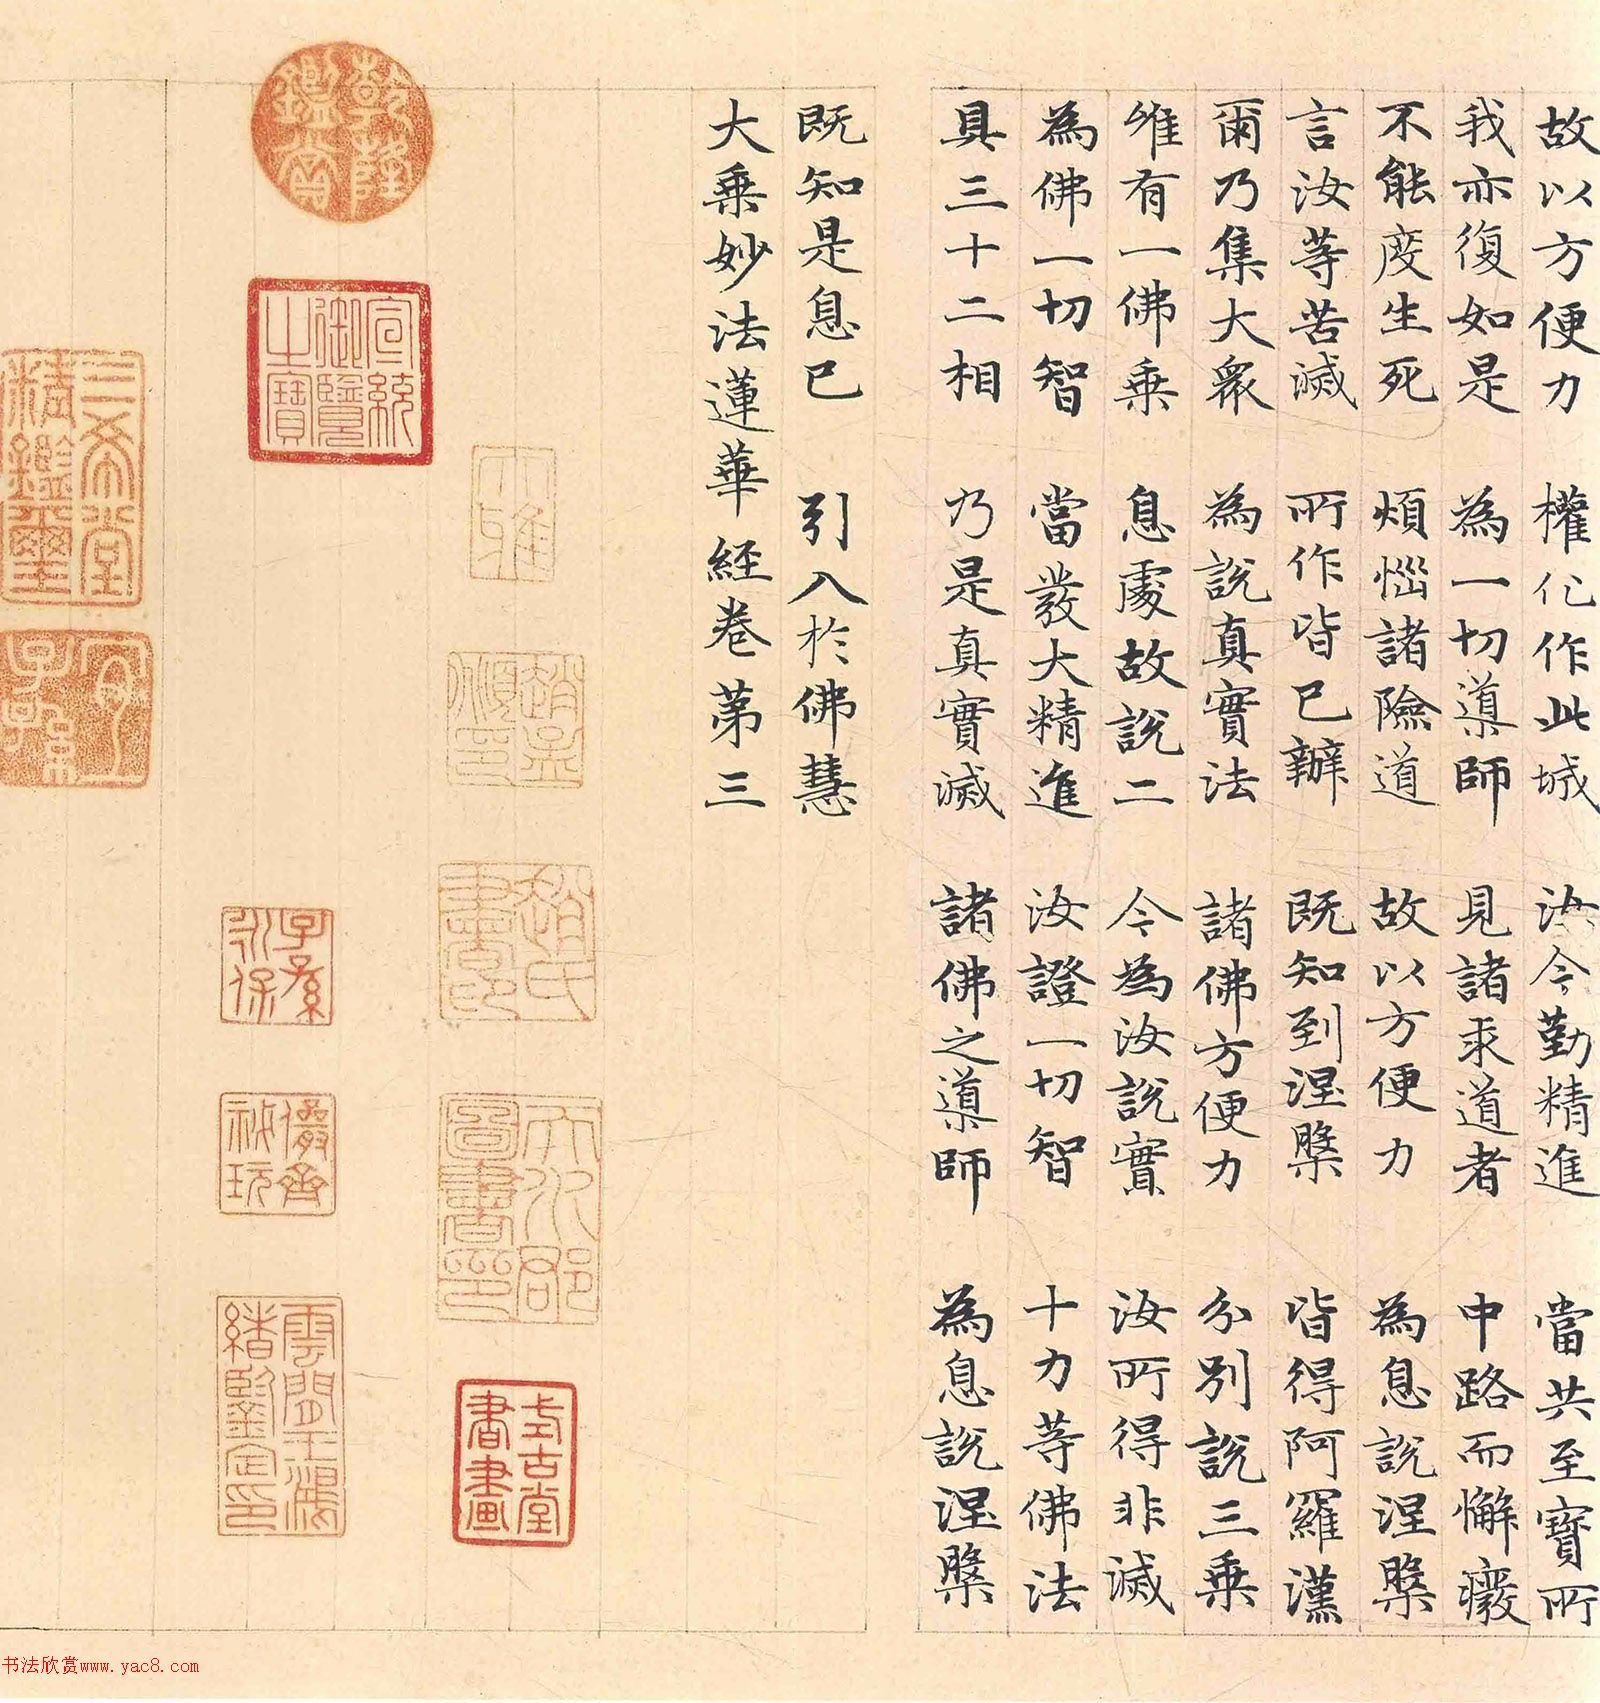 故以方便力　權化作此城　汝今勤精進　當共至寶所
我亦復如是　為一切導師　見諸求道者　中路而懈癈
不能度生死　煩惱諸險道　故以方便力　為息說涅槃
言汝等苦滅　所作皆已辦　既知到涅槃　皆得阿羅漢
爾乃集大眾　為說真實法　諸佛方便力　分別說三乗
唯有一佛乗　息處故說二　今為汝說實　汝所得非滅
為佛一切智　當發大精進　汝證一切智　十力等佛法
具三十二相　乃是真實滅　諸佛之導師　為息說涅槃
既知是息已　引入於佛慧
大乗妙法蓮華經卷第三
大雅
趙孟頫印
趙氏書印
天水郡圖書印
式古堂書畫
乾隆鑑賞
宣統御覽之寶
子孫永保
儼齋秘玩
雲間王鴻緒鑒定印
三希堂精鑑璽
宜子孫
书法欣赏www.yac8.com